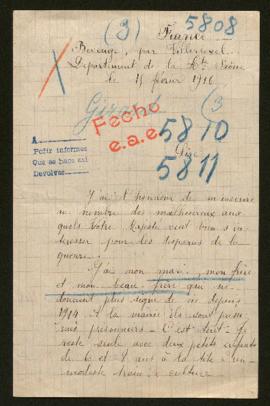 (3) 5808
France
par Villersexel
Département de la Hte Saône
le 15 février 1916
Girard
(3
Fecho
e.a.e.
5810
5811
Sire
A
Pedir informes
Que se hace así
Devolver
J'ai l'honneur de m'inscrire
au nombre des malheureux aux
quels Votre Majesté veut bien s'in
téresser pour les disparus de la
guerre.
J'ai mon mari, mon frère
et mon beau-frère qui ne
donnent plus signe de vie depuis
1914. A la mairie ils sont passés
mis prisonniers - C'est tout - Je
reste seule avec deux petits enfants
de 6 et 8 ans à la tête d'un
modeste train de culture.